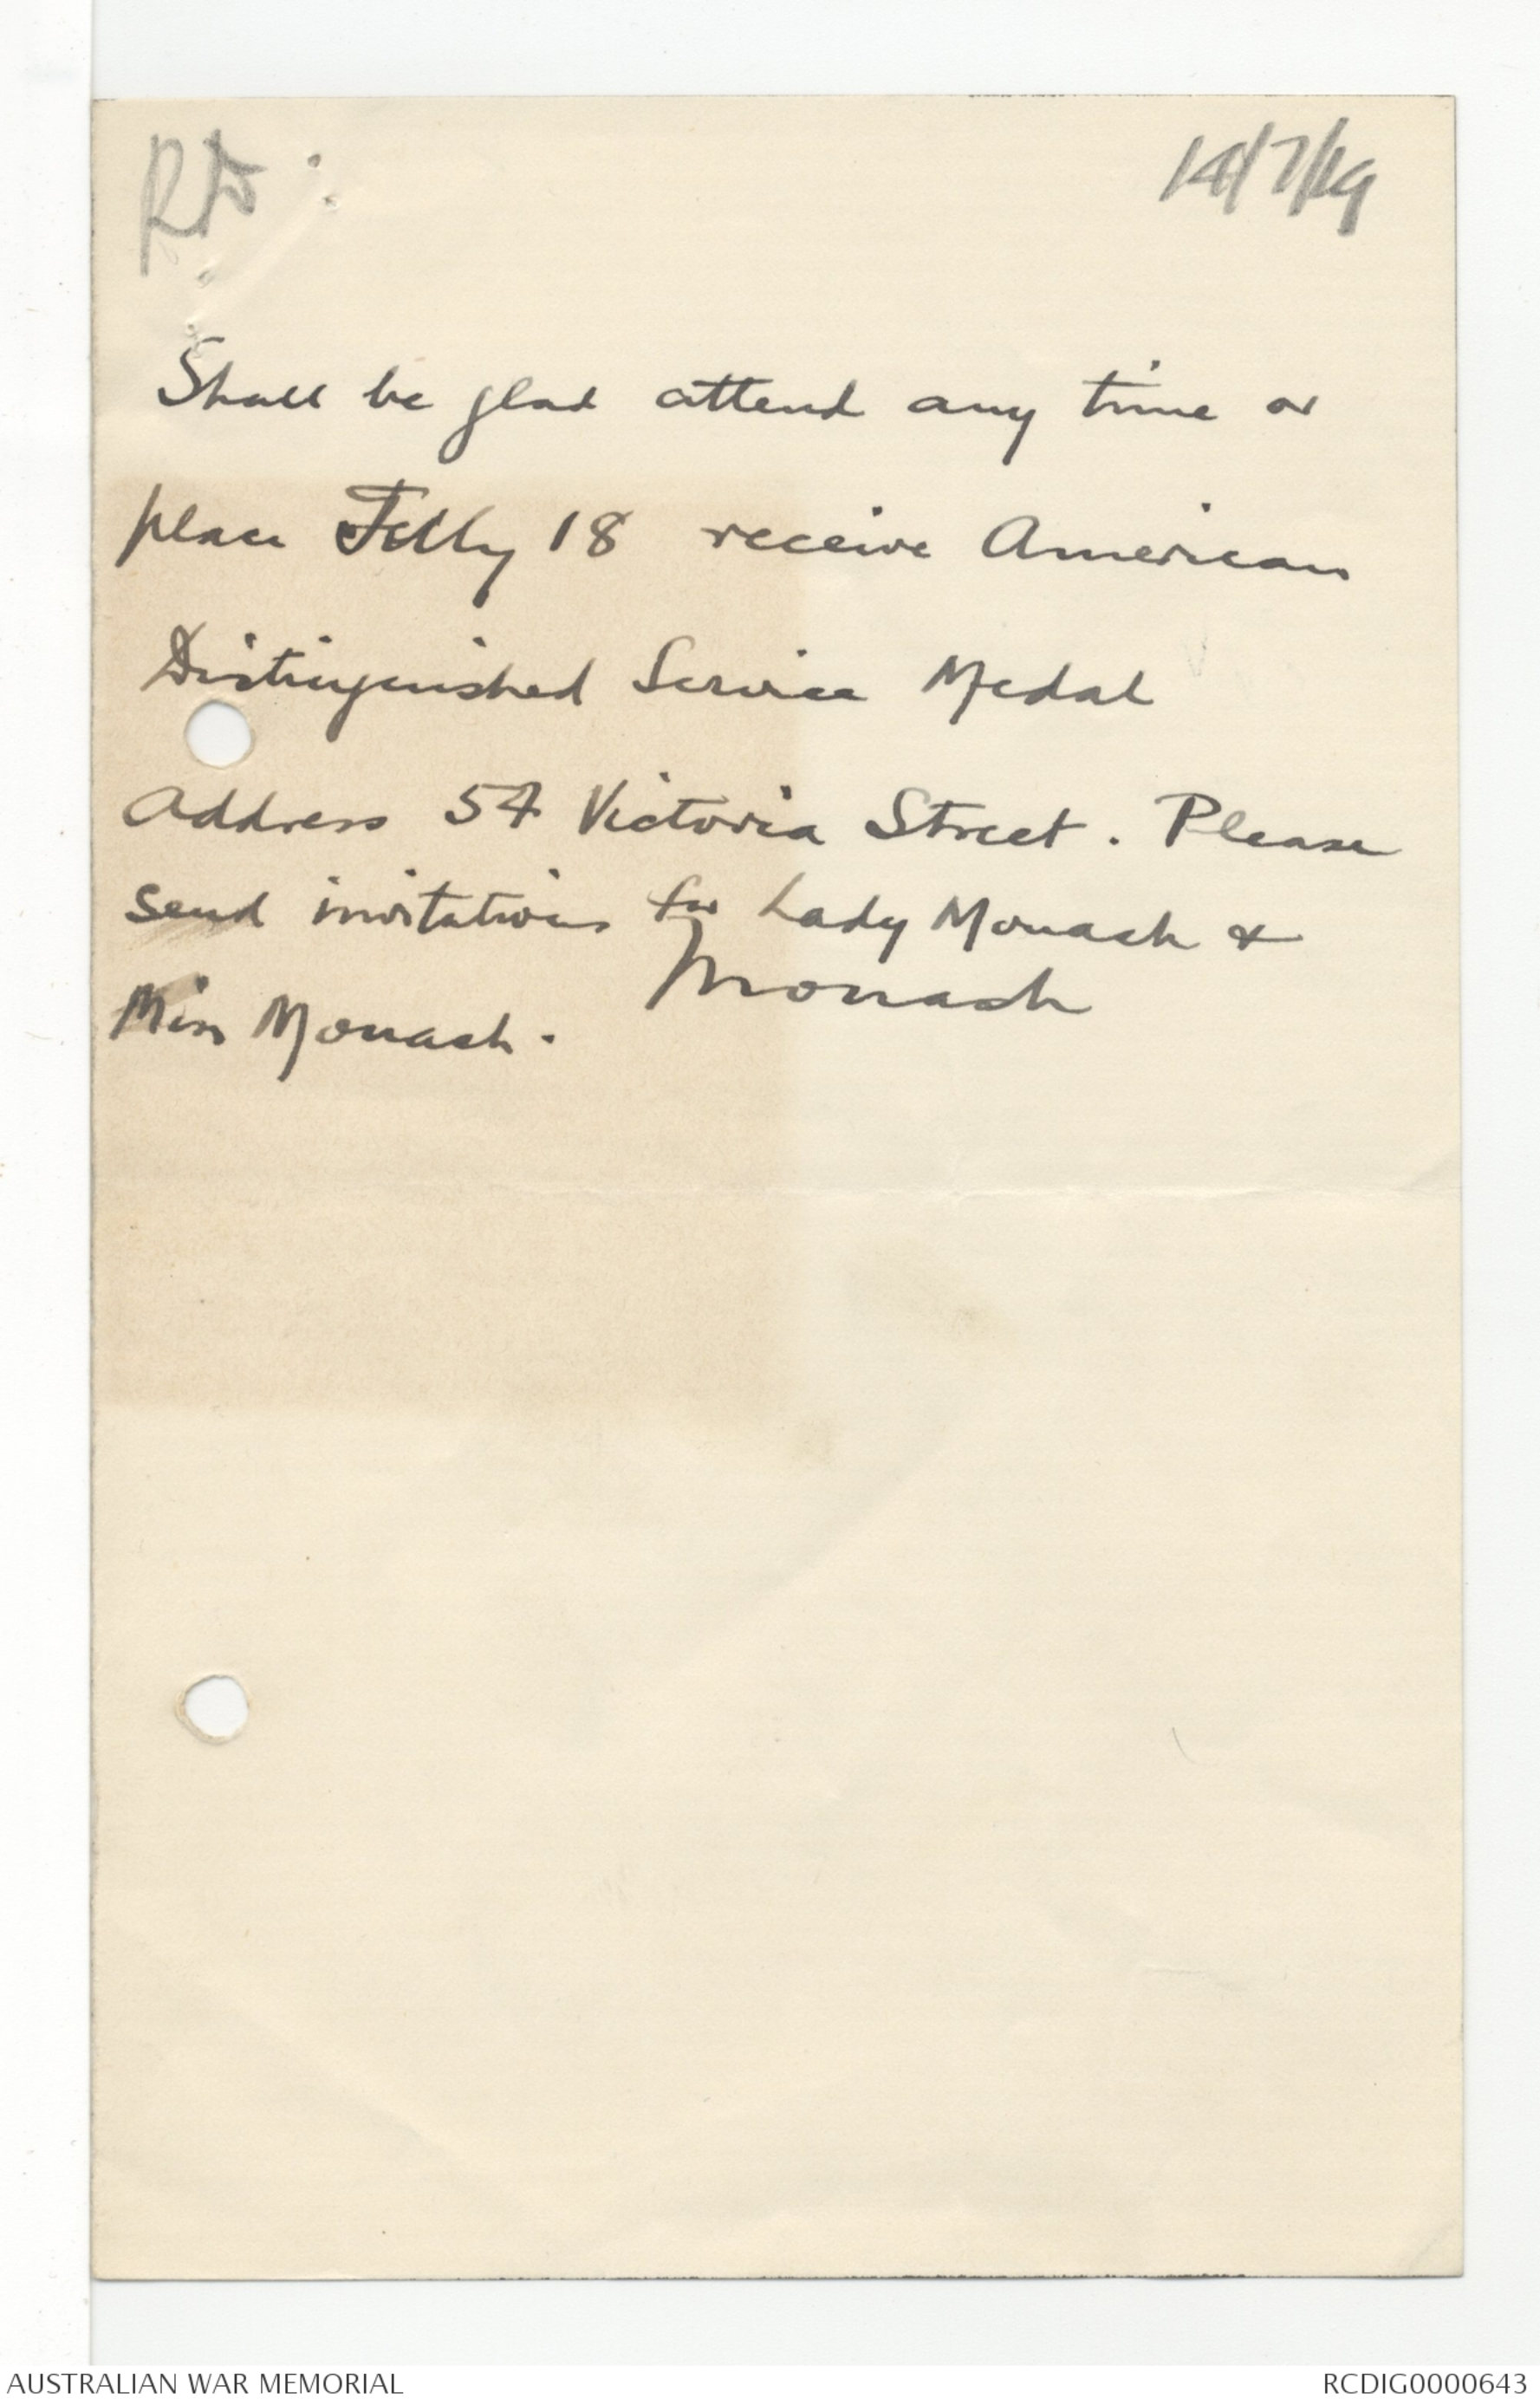 14/7/19
Shall be glad attend any time or
place July 18 receive American
Distinguished Service Medal
Address 54 Victoria Street. Please
send invitations for Lady Monash &
Monash
Miss Monash.
AUSTRALIAN WAR MEMORIAL
RCDIG0000643